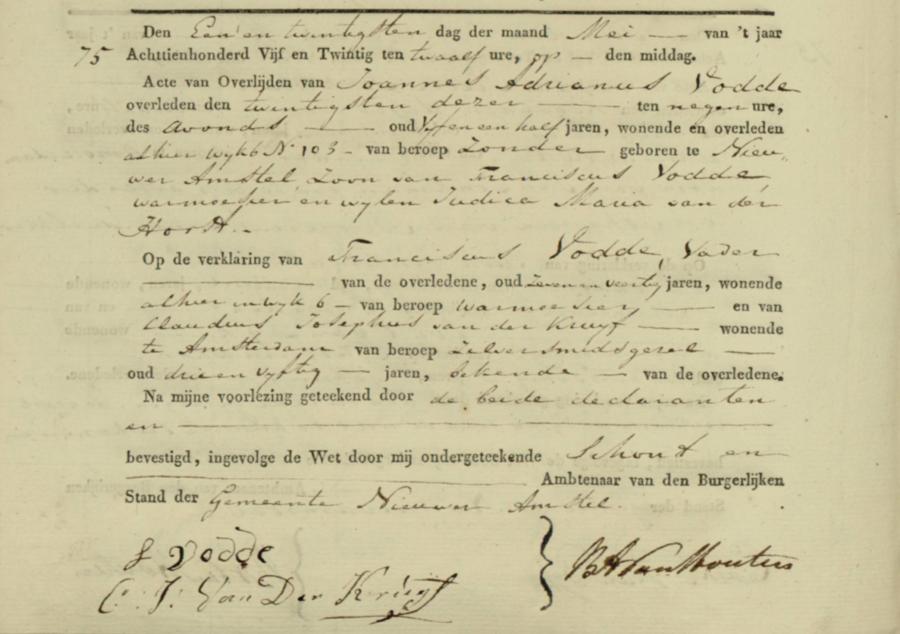 Den Een en twintigsten dag der maand Mei — van 't jaar
75 Achttienhonderd Vijf en Twintig ten twaalf ure, op — den middag.
Acte van Overlijden van Joannes Adrianus Vodde
overleden den twintigsten dezer — ten negen ure,
des avonds — oud Vyf en een half jaren, wonende en overleden
alhier wyk 6 N 103 - van beroep Zonder geboren te Nieu-
wer Amstel, Zoon van Franciscus Vodde,
warmoesier en wylen Judica Maria van der
Horst.-
Op de verklaring van Franciscus Vodde, Vader
— van de overledene, oud Zeven en veertig jaren, wonende
alhier in wyk 6 - van beroep warmoesier — en van
Claudius Josephus van der Kruyf — wonende
te Amsterdam van beroep Zilversmidsgezel —
oud drie en vyftig — jaren, bekende — van de overledene.
Na mijne voorlezing geteekend door de beide declaranten
en —
bevestigd, ingevolge de Wet door mij ondergeteekende Schout en
— Ambtenaar van den Burgerlijken
Stand der Gemeente Nieuwer Amstel.
f vodde
C: J: Van Der Kruyf